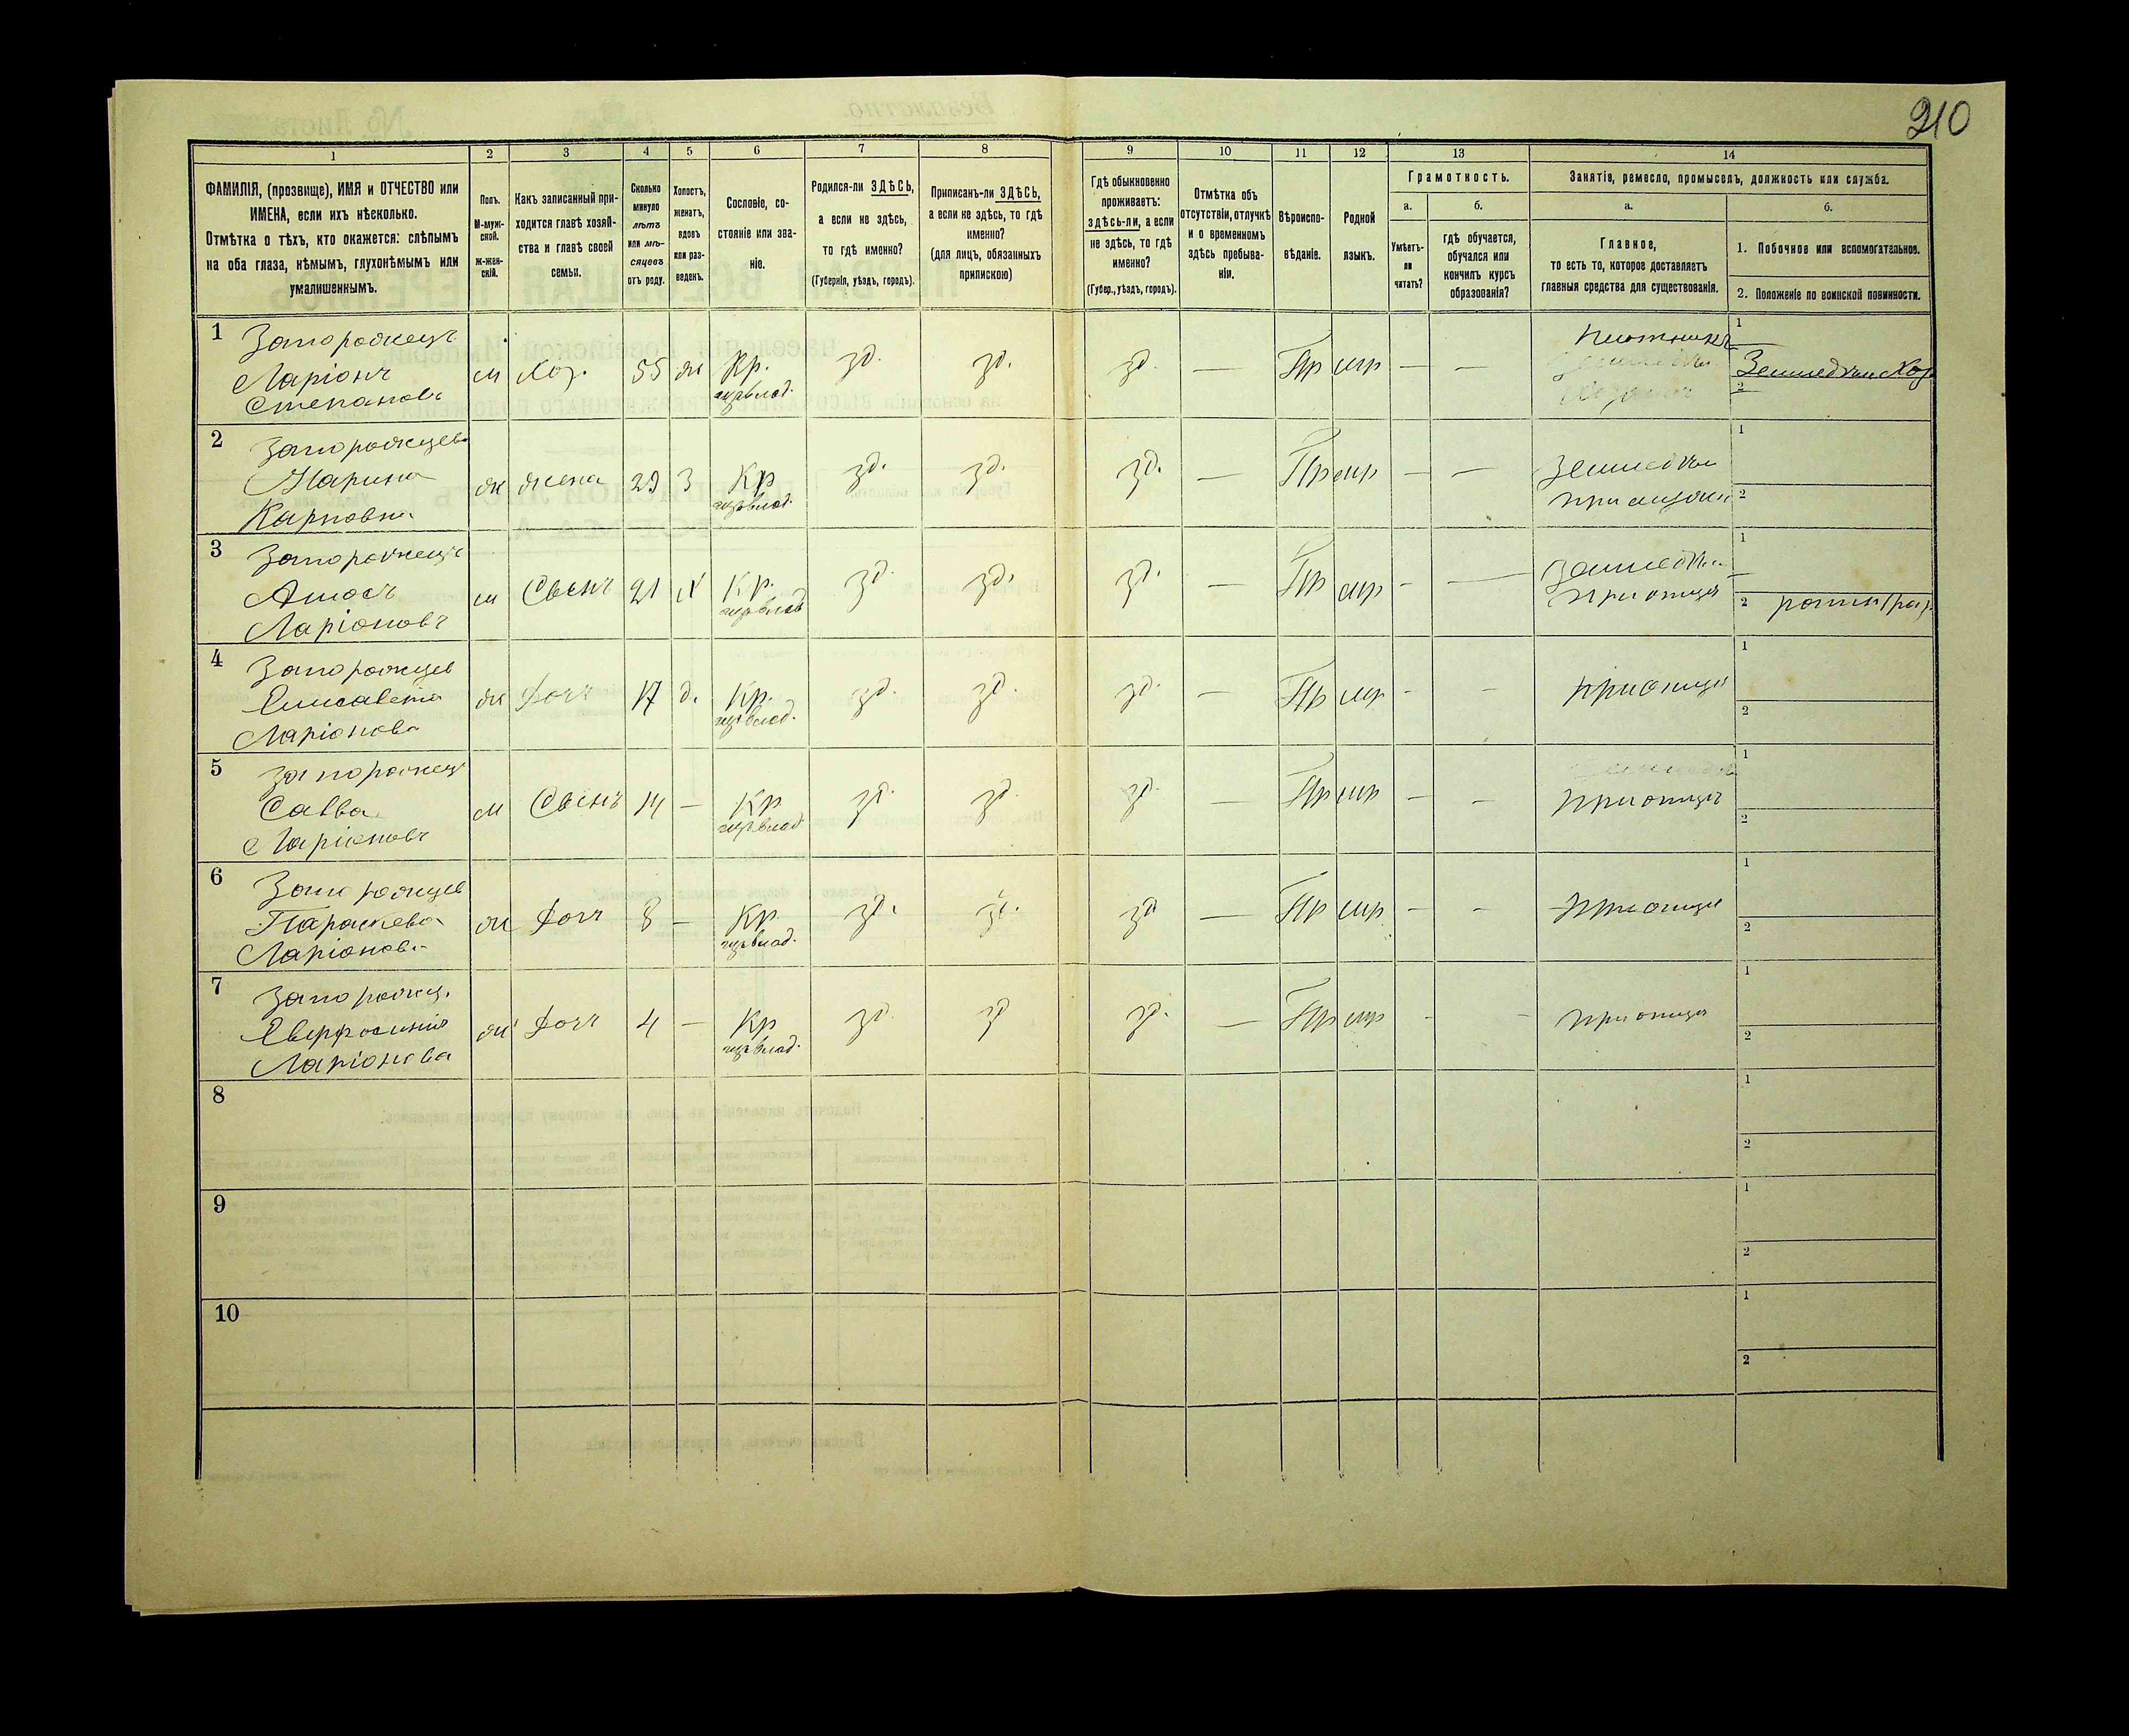 210
1
2
3
4
5
6
7
8
9
10
11
12
13
14
ФАМИЛІЯ, (прозвище), ИМЯ и ОТЧЕСТВО или
ИМЕНА, если ихъ нѣсколько.
Отмѣтка о тѣхъ, кто окажется: слѣпымъ
на оба глаза, нѣмымъ, глухонѣмымъ или
умалишеннымъ.
Полъ.
М-муж-
ской.
Ж-жен-
скій.
Какъ записанный при-
ходится главѣ хозяй-
ства и главѣ своей
семьи.
Сколько
минуло
лѣтъ
или мѣ-
сяцевъ
отъ роду.
Холостъ,
женатъ,
вдовъ
или раз-
веденъ.
Сословіе, со-
стояніе или зва-
ніе.
Родился-ли ЗДѢСЬ,
а если не здѣсь,
то гдѣ именно?
(Губернія, уѣздъ, городъ).
Приписанъ-ли ЗДѢСЬ,
а если не здѣсь, то гдѣ
именно?
(для лицъ, обязанныхъ
припискою)
Гдѣ обыкновенно
проживаетъ:
здѣсь-ли, а если
не здѣсь, то гдѣ
именно?
(Губер., уѣздъ, городъ).
Отмѣтка объ
отсутствіи, отлучкѣ
и о временномъ
здѣсь пребыва-
ніи.
Вѣроиспо-
вѣданіе.
Родной
языкъ.
Грамотность.
а.
Умѣетъ-
ли
читать?
б.
гдѣ обучается,
обучался или
кончилъ курсъ
образованія?
Занятіе, ремесло, промыселъ, должность или служба.
а.
Главное,
то есть то, которое доставляетъ
главныя средства для существованія.
б.
1. Побочное или вспомогательное.
2. Положеніе по воинской повинности.
1
Запорожецъ
Ларіонъ
Степановъ
м
Хоз.
55
ж
Кр.
зд.
зд.
зд.
—
Пр
мр
—
—
Плотникъ
1
2
2
Запорожцева
Марина
Карповна
ж
жена
29
З
Кр
зд.
зд.
зд.
—
Пр
мр
—
—
1
2
3
Запорожецъ
Амосъ
Ларіоновъ
м
Сынъ
21
Х
Кр.
зд.
зд.
зд.
—
Пр
мр
-
—
при отцѣ
1
2
4
Запорожцев
Елисавета
Ларіонова
ж
Дочь
17
д.
Кр.
зд.
зд.
зд.
—
Пр
мр
-
-
при отцѣ
1
2
5
Запорожецъ
Савва
Ларіоновъ
м
Сынъ
14
—
Кр
зд.
зд.
зд.
—
Пр
мр
—
-
при отцѣ
1
2
6
Запорожцев
Параскева
Ларіонова
ж
Дочь
8
—
Кр
зд.
зд.
зд
—
Пр
мр
-
-
при отцѣ
1
2
7
Запорожц.
Евфросинія
Ларіонова
ж
Дочь
4
—
Кр
зд.
зд
зд.
—
Пр
мр
-
-
при отцѣ
1
2
8
1
2
9
1
2
10
1
2